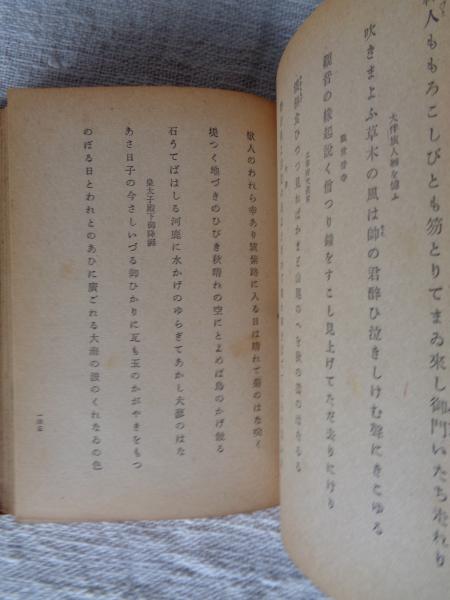 人ももろこしびとも笏とりてまゐ來し御門いたち荒れり
大伴旅人卿を憶ふ
吹きまよふ草木の風は帥の君醉ひ泣きしけむ聲にきこゆる
觀世音寺
觀音の縁起説く僧つり鐘をすこし見上げてただ去りにけり
見れば
歌人のわれら幸あり筑紫路に入る日は晴れて菊のはな咲く
堤つく地づきのひびき秋晴れの空にとよめば鳥のかげ散る
石うてばはしる河鹿に水かげのゆらぎてあかし夫藍のはな
皇太子殿下御降誕
あさ日子の今さしいづる御ひかりに瓦も玉のかがやきをもつ
のぼる日とわれとのあひに廣ごれる大海の波のくれなゐの色